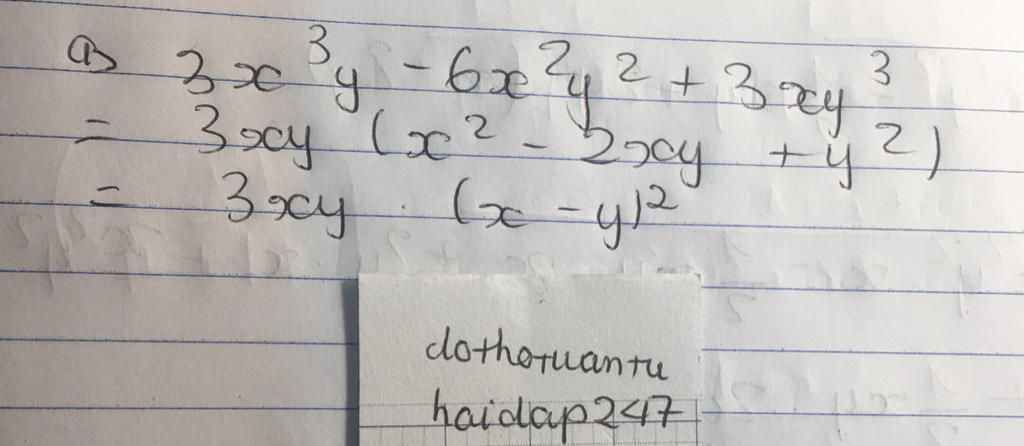 a) 3x³y - 6x²y² + 3xy³
= 3xy (x² - 2xy + y²)
= 3xy . (x - y)²
dothotuantu
haidap247